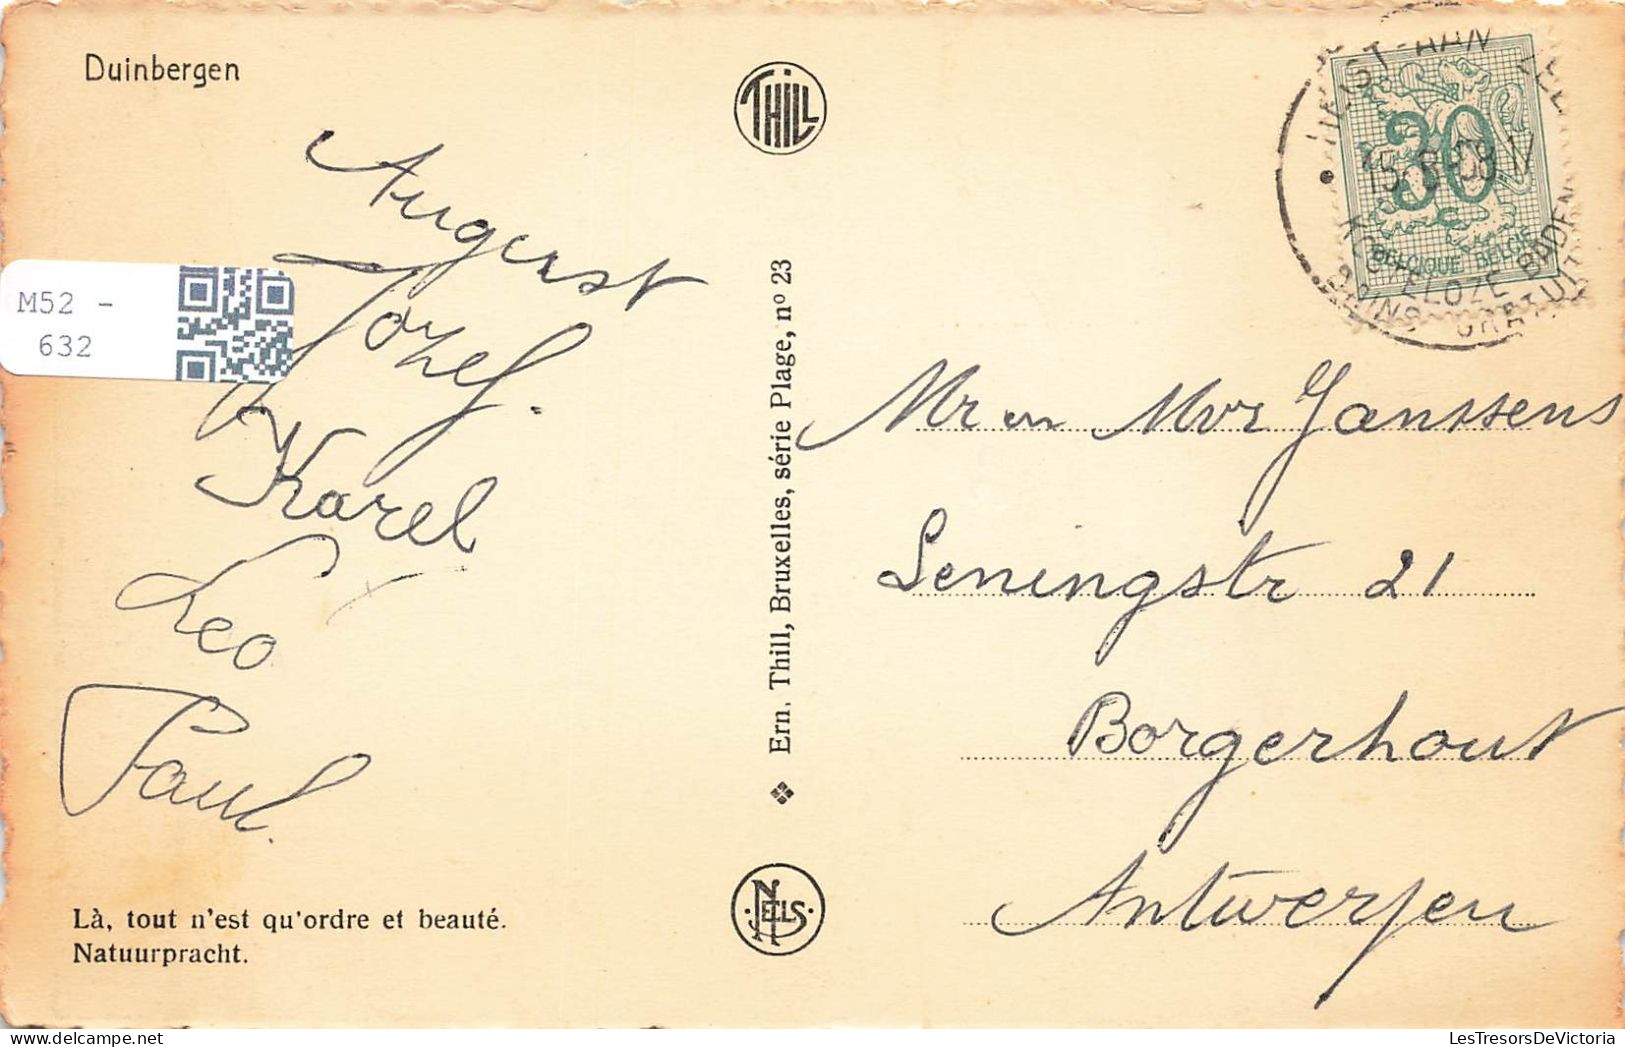 Duinbergen
THILL
August
Jozef.
Karel
Léo
Paul.
M52 -
632
Là, tout n'est qu'ordre et beauté.
Natuurpracht.
❖ Ern. Thill, Bruxelles, série Plage, nº 23
NELS
30
BELGIQUE BELGIE
15-8-58
KOSTELOZE BADEN
BAINS GRATUITS
Mr en Mvr Janssens
Leningstr 21
Borgerhout
Antwerpen
LesTresorsDeVictoria